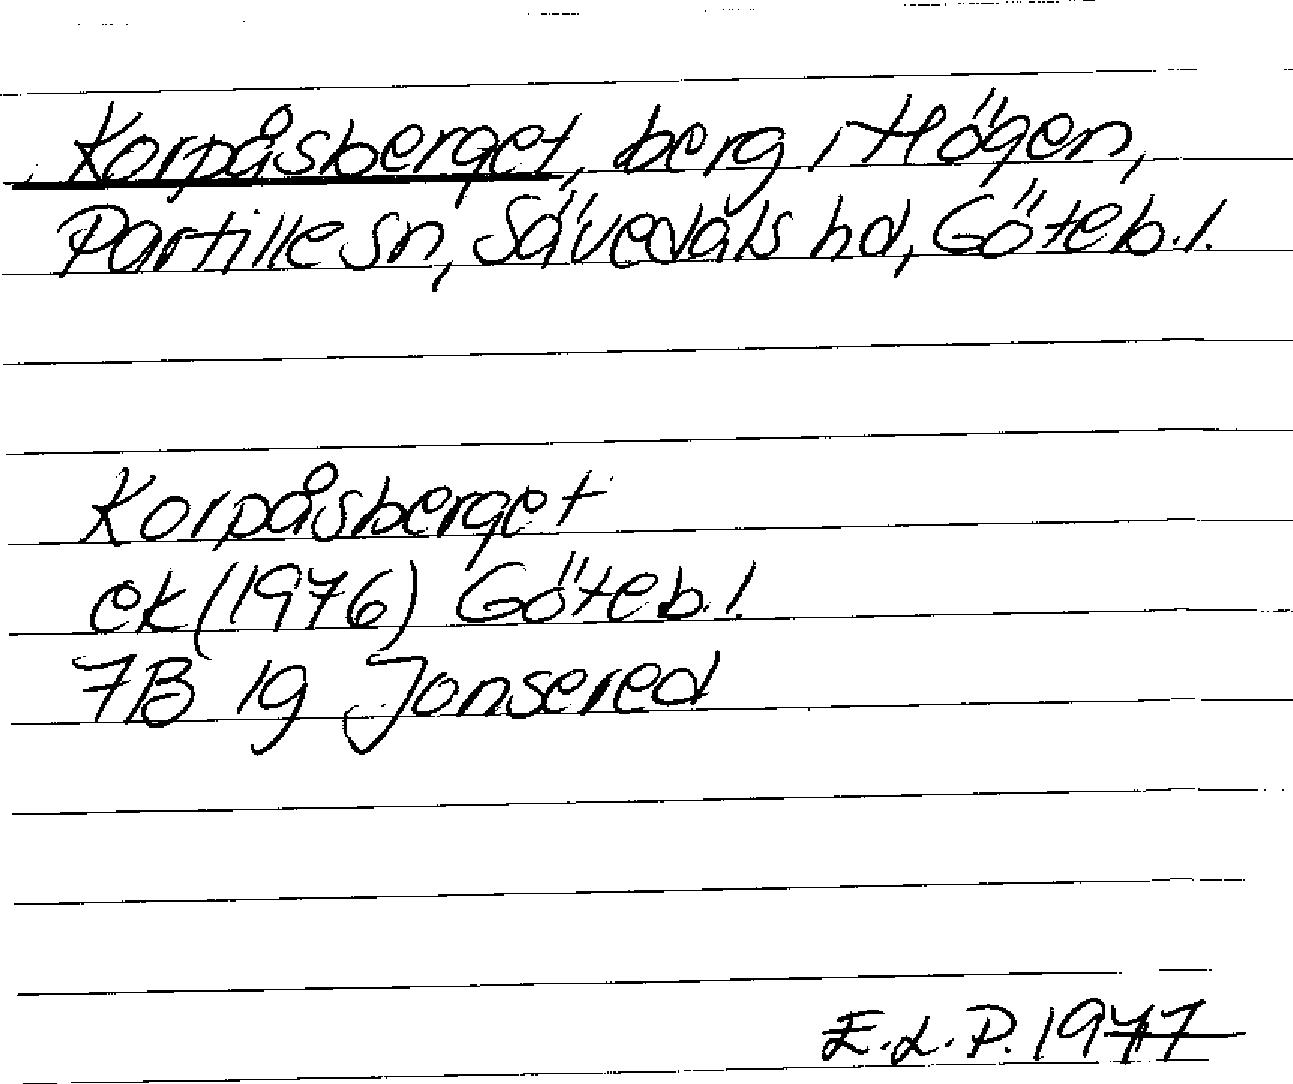 Korpåsberget, berg i Högen,
Partille sn, Sävedals hd, Göteb. l.
Korpåsberget
ek (1976) Göteb. l.
7B 1g Jonsered
E.L.P. 1977